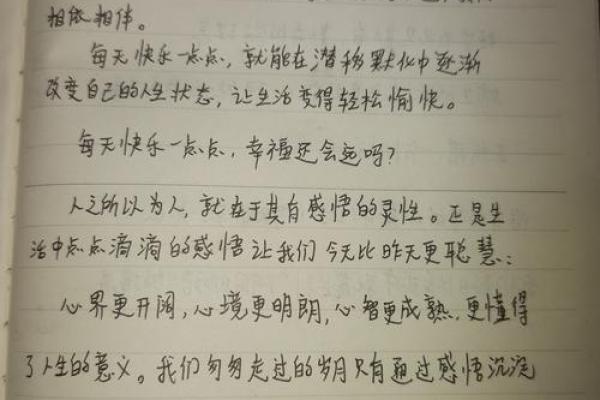 相依相伴。
每天快乐一点点，就能在潜移默化中逐渐
改变自己的人生状态，让生活变得轻松愉快。
每天快乐一点点，幸福还会远吗？
人之所以为人，就在于其有感悟的灵性。正是生
活中点点滴滴的感悟让我们今天比昨天更聪慧；
心界更开阔，心境更明朗，心智更成熟，更懂得
了人生的意义。我们匆匆走过的岁月只有通过感悟沉淀